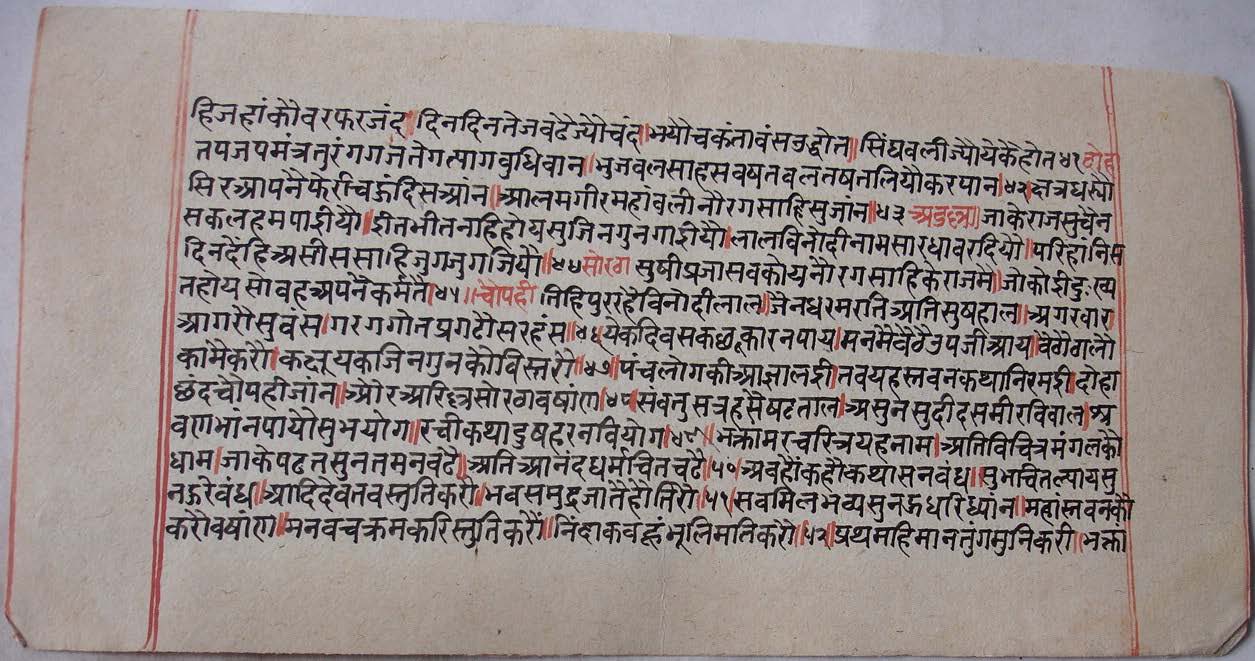 हिजहांकौवरफरजंद। दिनदिनतेजवढैज्यौचंद। भयौचकंतावंसउद्योत॥ सिंघवलीज्यौयेकैहोत ४१ दोहा
तपजपमंत्रतुरंगगजनेगत्यागवुधिवान॥ भुजवलसाहसवषतवलतषतलियौकरपान॥४२॥ छत्रधर्यौ
सिरआपनैफेरीचऊंदिसआंन॥ आलमगीरमहांवलीनौरगसाहिसुजांन॥४३ अडिल्ल॥ जाकेराजसुचैन
सकलहमपाईयौ॥ ईतभीतनाहिहोयसुजिनगुनगाईयौ॥ लालविनोदीनामसारधावरदियौ॥ परिहांनिस
दिनदेहिअसीससाहिजुगजुगजियौ॥४४ सोरठा सुषीप्रजासवकोयनौरगसाहिकेराजमै॥ जोकोईदुःख्य
नहोयसोवहअपनैकर्मतै॥४५॥ चोपही तिहिपुररहैविनोदीलाल॥ जैनधरमरतिअतिसुषहाल॥ अगरवार
आगरौसुवंस॥ गरगगोतप्रगटौसरहंस॥४६ येकदिवसकछूकारनपाय॥ मनमैवैठैउपजीआय॥ वैठेगलो
कांमैकरौ॥ कछूयकजिनगुनकोविस्तरौ॥४७॥ पंचलोगकीआज्ञालई॥ तवयहस्तवनकथानिरमई॥ दोहा
छंदचौपहीजांन॥ औरअरिल्लसोरठावषांण॥४८ संवतुसत्रहसैषटताल॥ असुनसुदीदसमीरविवाल॥ श्र
वणभांनपायौसुभयोग॥ रचीकथादुषहरनवियोग॥४९॥ भक्तामरचरित्रयहनाम॥ अतिविचित्रमंगलकौ
धाम॥ जाकेपढतसुनतमनवढै॥ अतिआनंदधर्मचितचढै॥५० अवहौंकहौकथासनवंध॥ सुभचितल्यायसु
नऊरेवंध॥ आदिदेवतवस्तुतिकरौ॥ भवसमुद्रजातैहौतिरौ॥५१ सवमिलभव्यसुनऊधरिध्यांन॥ महांस्तवनकौ
करौवषांण॥ मनवचक्रमकरिस्तुतिकरौं॥ निंदाकवहूंभूलिमतिकरौ॥५२॥ प्रथमहिमानतुंगमुनिकरी॥ भक्ता